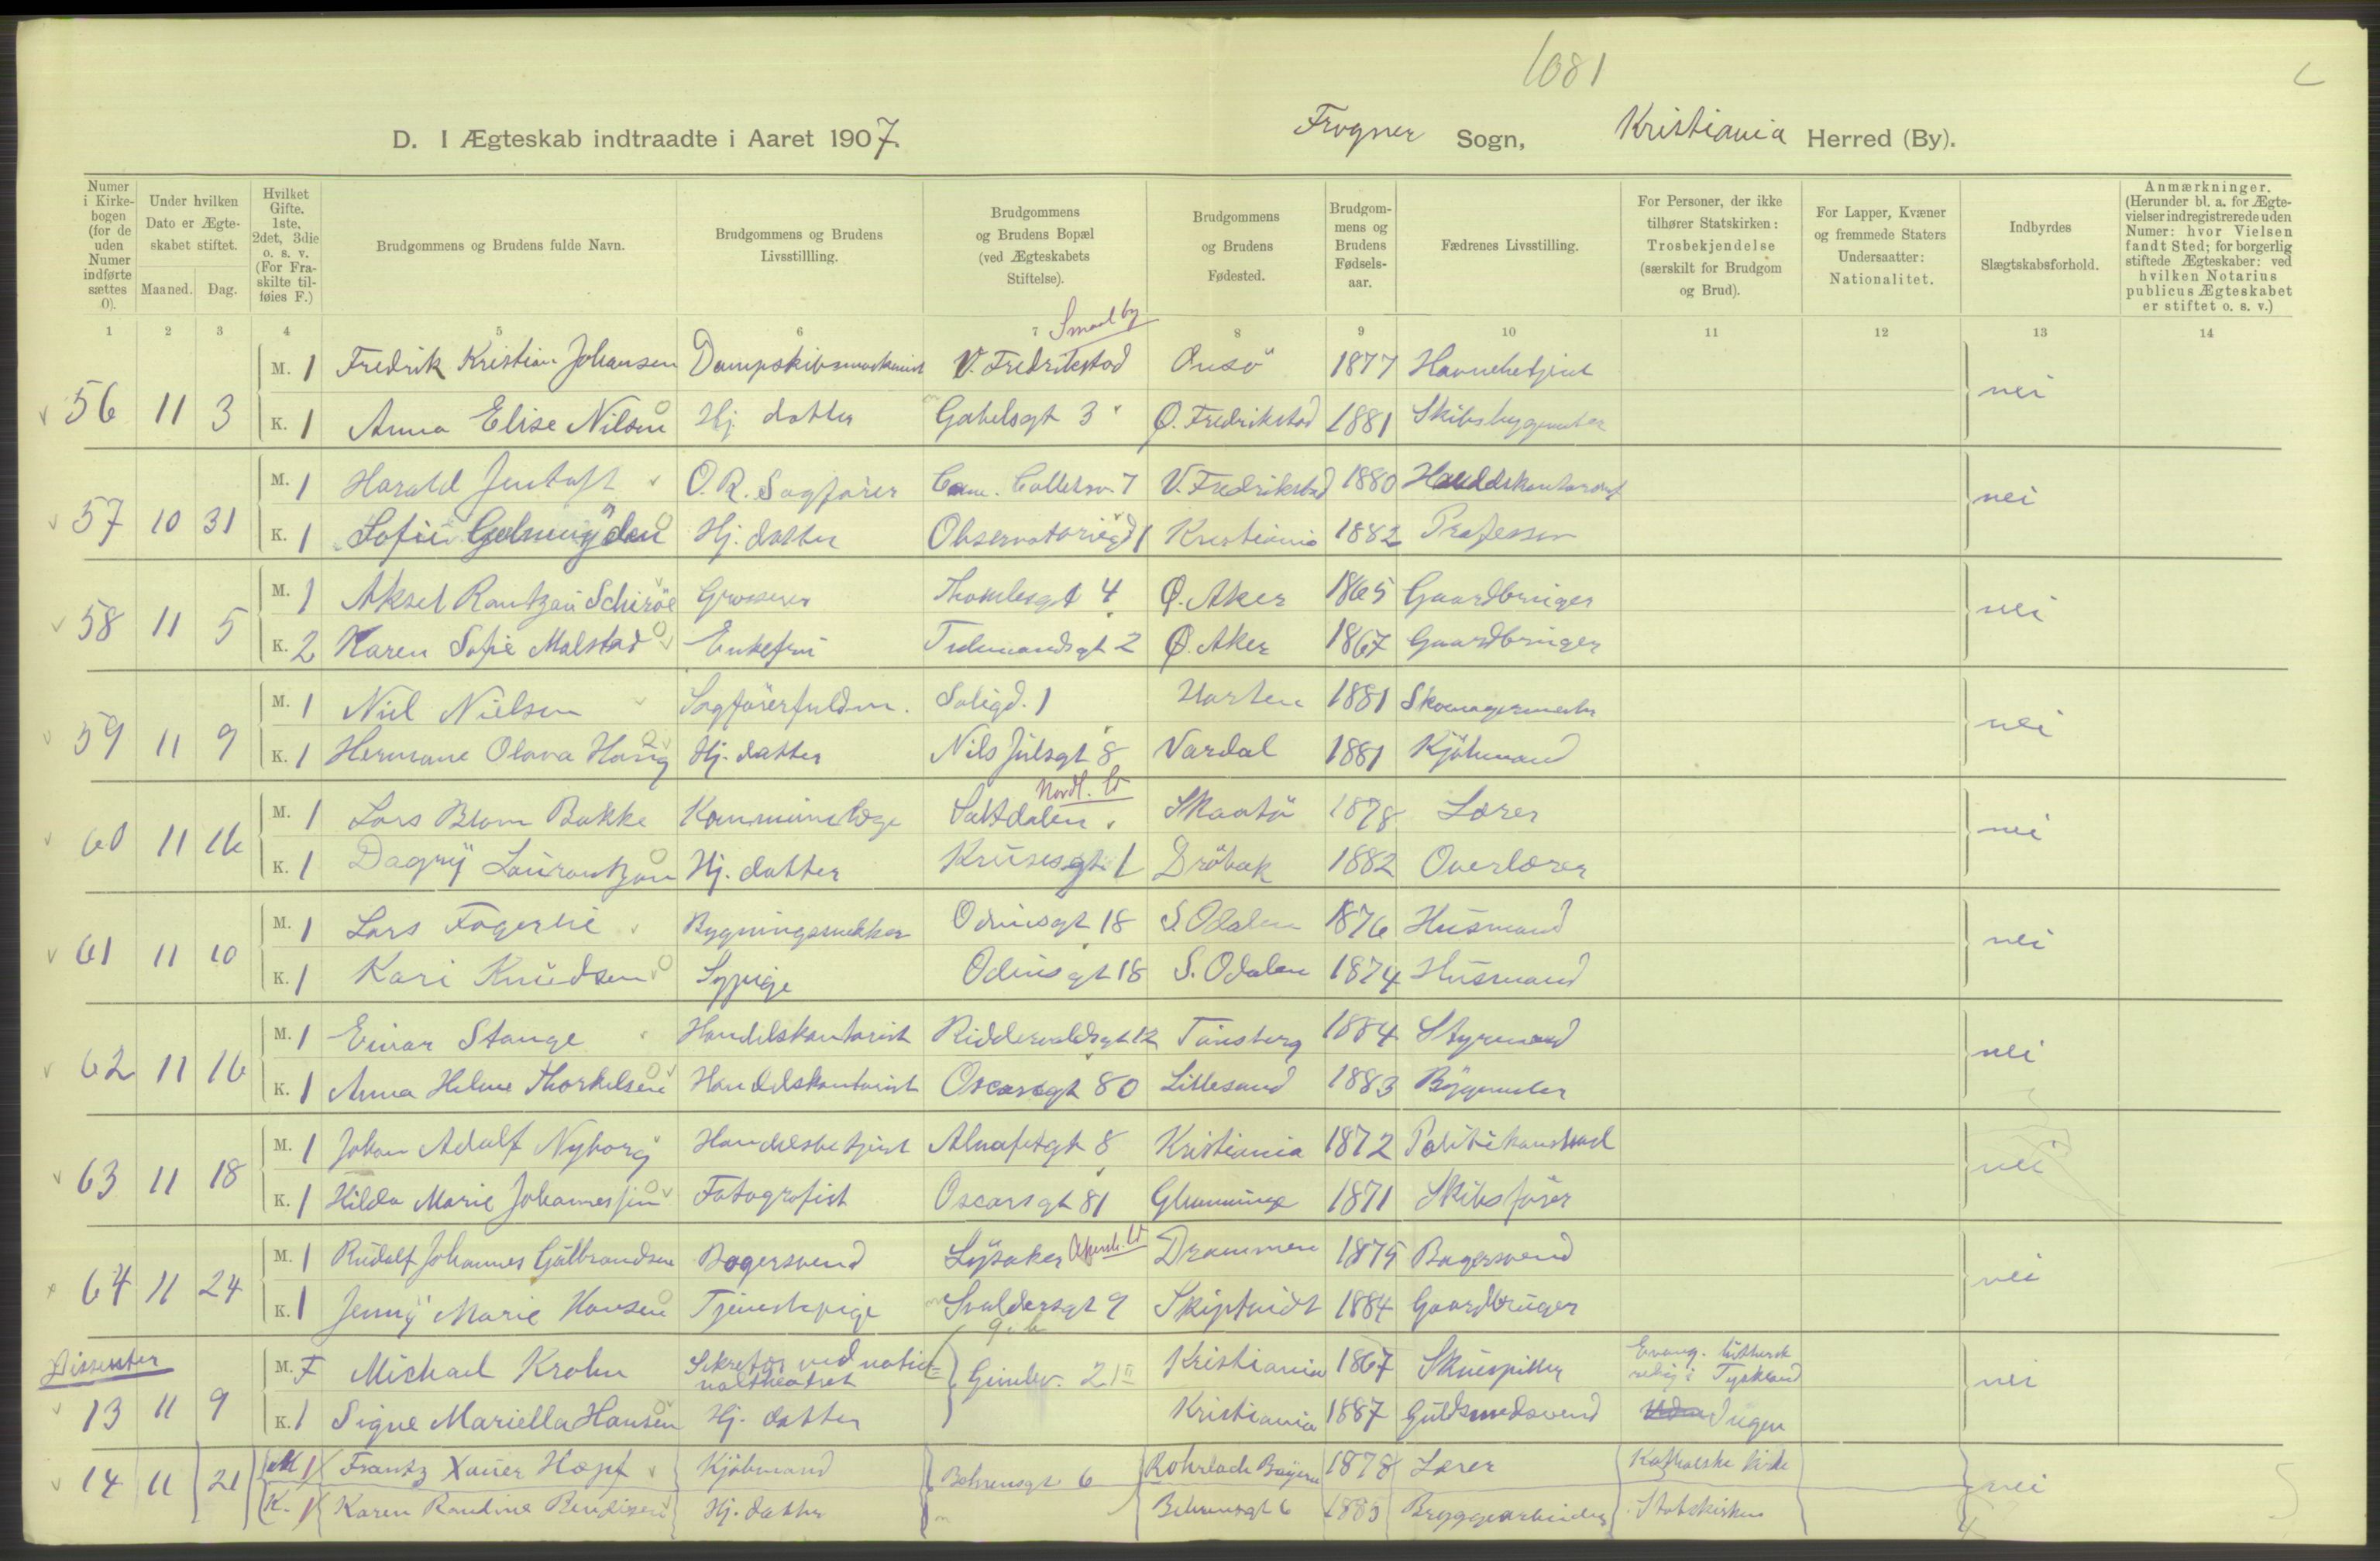 1081
D. I Ægteskab indtraadte i Aaret 1907.
Frogner Sogn, Kristiania Herred (By).
Numer i Kirkebogen (for de uden Numer indførte sættes 0).
Under hvilken Dato er Ægteskabet stiftet.
Maaned. Dag.
Hvilket Gifte. 1ste, 2det, 3die o. s. v. (For Fraskilte tilføies F.)
Brudgommens og Brudens fulde Navn.
Brudgommens og Brudens Livsstillling.
Brudgommens og Brudens Bopæl (ved Ægteskabets Stiftelse).
Brudgommens og Brudens Fødested.
Brudgommens og Brudens Fødselsaar.
Fædrenes Livsstilling.
For Personer, der ikke tilhører Statskirken: Trosbekjendelse (særskilt for Brudgom og Brud).
For Lapper, Kvæner og fremmede Staters Undersaatter: Nationalitet.
Indbyrdes Slægtskabsforhold.
Anmærkninger. (Herunder bl. a. for Ægtevielser indregistrerede uden Numer: hvor Vielsen fandt Sted; for borgerlig stiftede Ægteskaber: ved hvilken Notarius publicus Ægteskabet er stiftet o. s. v.)
1 2 3 4 5 6 7 8 9 10 11 12 13 14
Smaal by
56 11 3 M. 1 Fredrik Kristian Johansen Dampskibsmaskinist V. Fredrikstad Onsö 1877 Havnebetjent nei
K. 1 Anna Elise Nilsen Hj. datter Gabelsgt 3 Ø. Fredrikstad 1881 Skibsbygmester
57 10 31 M. 1 Harald O.R. Sagfører Cam. Colletsv. 7 V. Fredrikstad 1880 Handelskontorist nei
K. 1 Sofie Hj. datter Observatoriegd 1 Kristiania 1882 Professor
58 11 5 M. 1 Aksel Rantzau Schiröe Grosserer Thomlesgt 4 Ø. Aker 1865 Gaardbruger nei
K. 2 Karen Sofie Malstad Enkefru Tidemandsgt 2 Ø. Aker 1867 Gaardbruger
59 11 9 M. 1 Niel Nielsen Sagförerfuldm. Soligd. 1 Horten 1881 Skomagermester nei
K. 1 Hermane Olava Haug Hj. datter Nils Julsgt 8 Vardal 1881 Kjöbmand
Nordl.
60 11 16 M. 1 Lars Blom Bakke Kommunelæge Saltdalen Skaatö 1878 Lærer nei
K. 1 Dagny Laurantzon Hj. datter Krusesgt 1 Dröbak 1882 Overlærer
61 11 10 M. 1 Lars Fagerlie Bygningssnekker Odinsgt 18 S. Odalen 1876 Husmand nei
K. 1 Kari Knudsen Sypige Odinsgt 18 S. Odalen 1874 Husmand
62 11 16 M. 1 Einar Stange Handelskontorist Riddervoldsgt 12 Tönsberg 1884 Styrmand nei
K. 1 Anna Helene Thorkelsen Handelskontorist Oscarsgt 80 Lillesand 1883 Bygmester
63 11 18 M. 1 Johan Adolf Nyborg Handelsbetjent Almafetgt 8 Kristiania 1872 Politikonstabel nei
K. 1 Hilda Marie Johannesen Fotografist Oscarsgt 81 Glemminge 1871 Skibsfører
64 11 24 M. 1 Rudolf Johannes Gulbrandsen Bagersvend Lysaker Akersh. Drammen 1875 Bagersvend nei
K. 1 Jenny Marie Hansen Tjenestepige Svoldersgt 9 Skiptvedt 1884 Gaardbruger
Dissenter
13 11 9 M. F Michael Krohn Sekretær ved natio= Gimlev. 21 II Kristiania 1867 Skuespiller Evang. luthersk nei
naltheatret relig. i Tyskland
K. 1 Signe Mariella Hansen Hj. datter Kristiania 1887 Guldsmedsvend Ingen
14 11 21 M 1 Frantz Xaver Hopf Kjöbmand Behrensgt 6 Rohrbach Bayern 1878 Lærer Katholske kirke nei
K. 1 Karen Randine Bendixen Hj. datter Behrensgt 6 1885 Bryggearbeider Statskirken